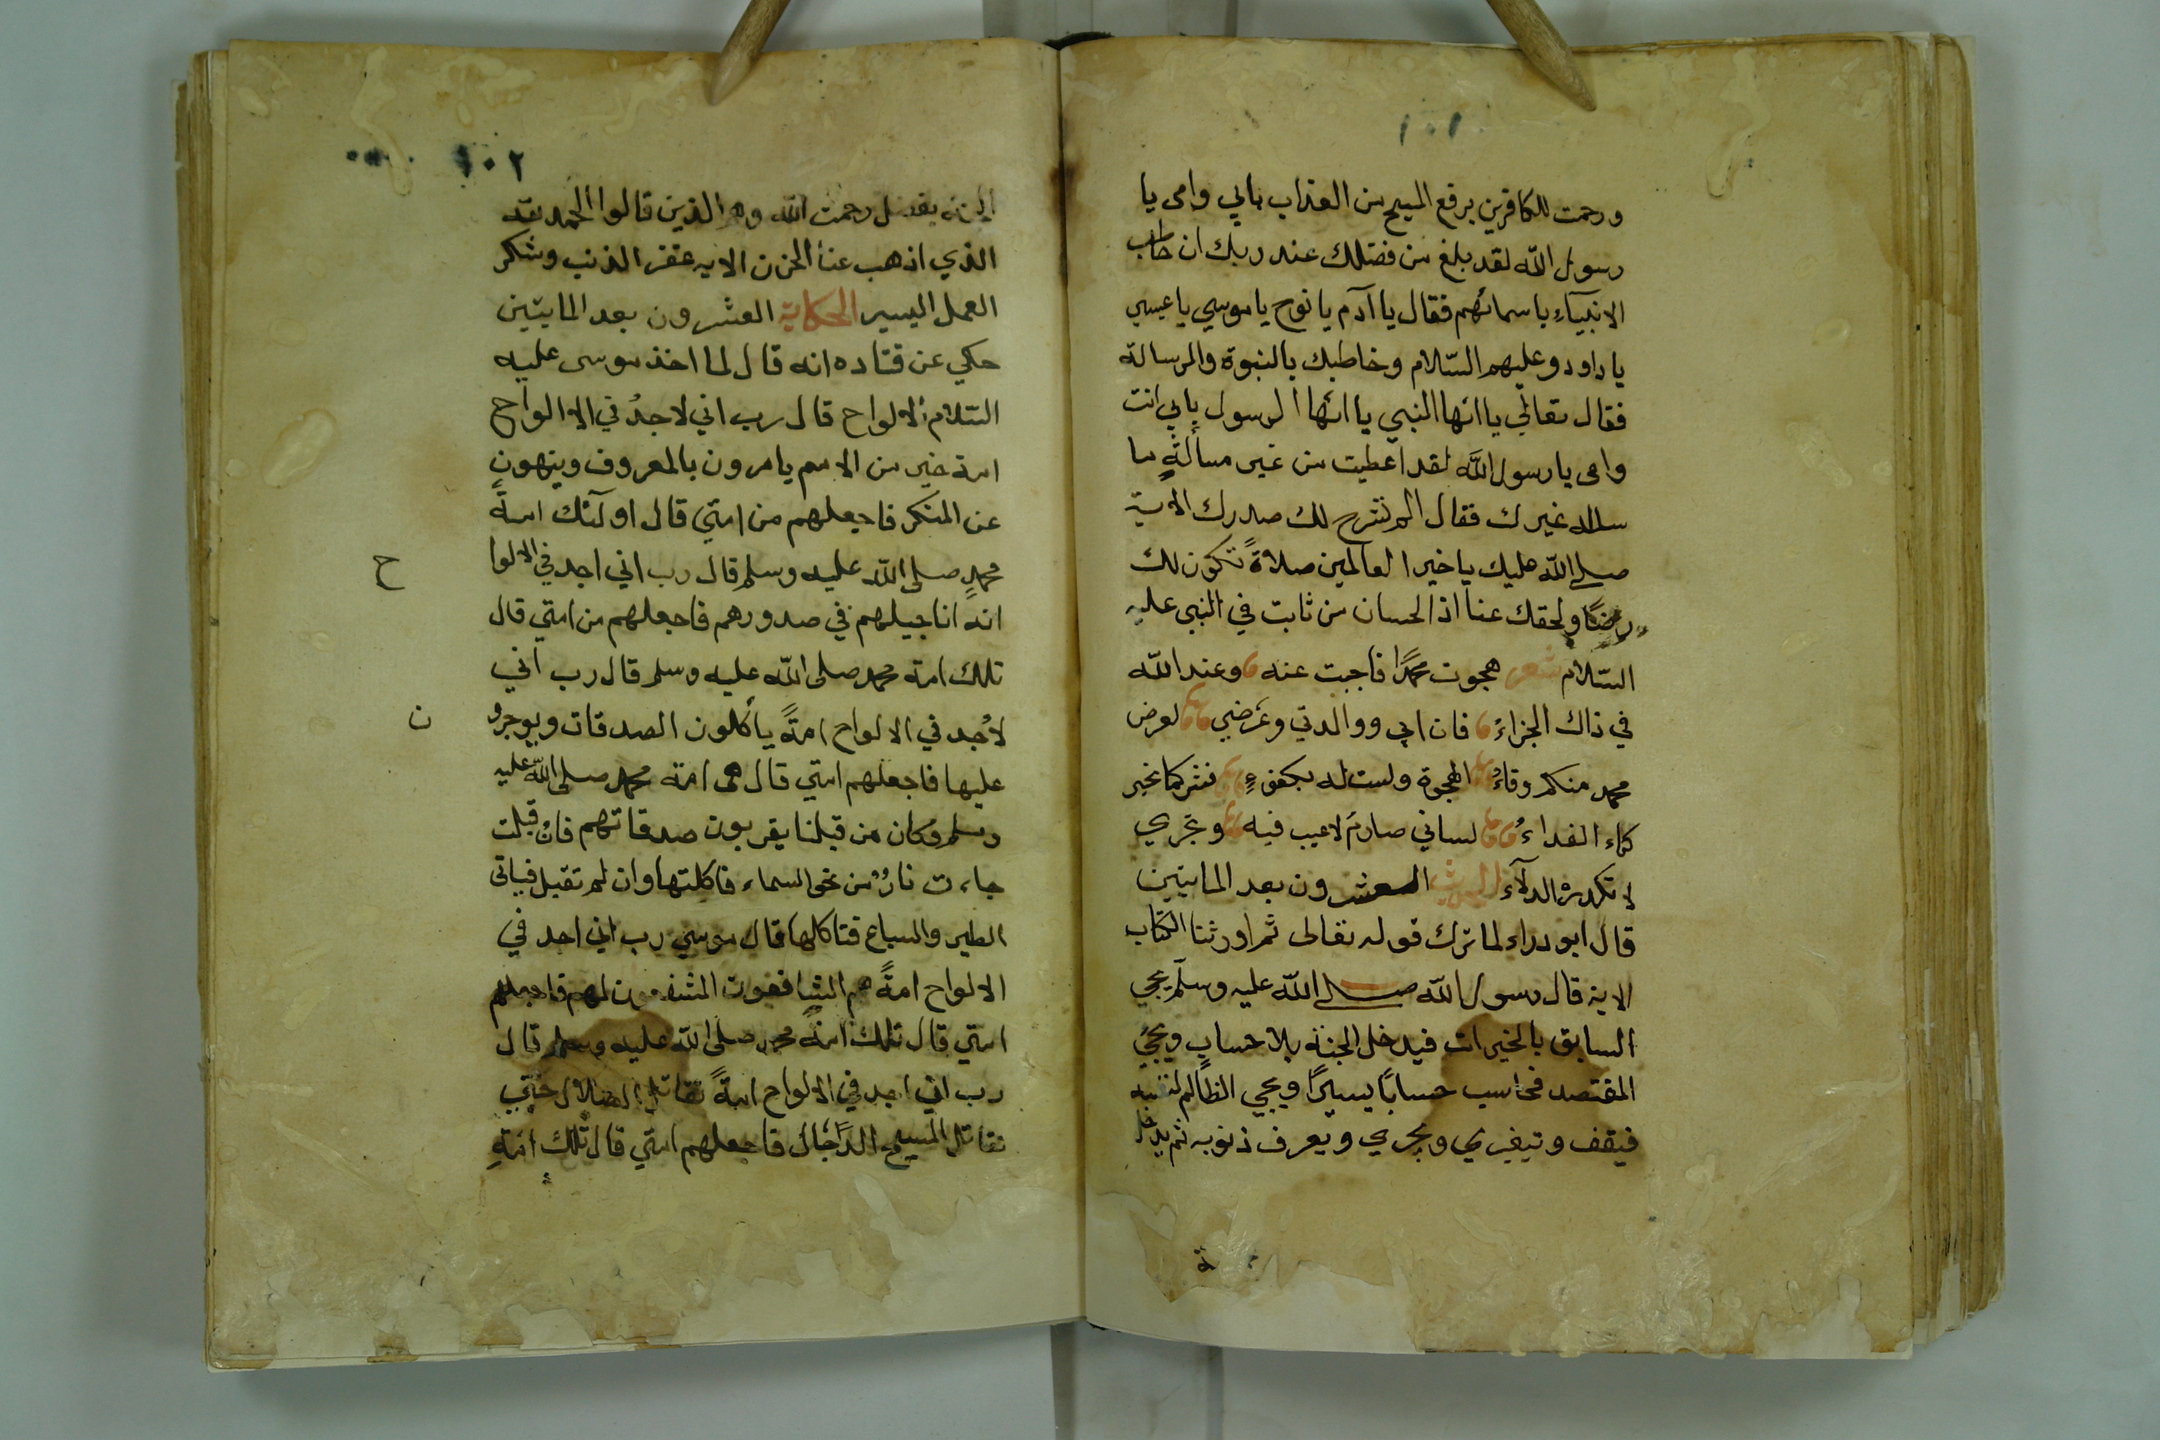 ١٠١
ورحمت للكافرين برفع المسيح من العذاب بابي وامي يا
رسول الله لقد بلغ من فضلك عند ربك ان خاطب
الانبياء باسمائهم فقال يا آدم يا نوح يا موسي يا عيسي
يا داود وعليهم السّلام وخاطبك بالنبوة والرسالة
فقال تعالي يا ايها النبي يا ايها الرسول بابي انت
وامي يا رسول الله لقد اعطيت من غير مسألةٍ ما
سأله غيرك فقال الم نشرح لك صدرك الاية
صلي الله عليك يا خير العالمين صلاةً تكون لك
رضًا ولحقك عنا اذ الحسان من ثابت في النبي عليه
السّلام شعر هجوت محمدًا فاجبت عنه وعند الله
في ذاك الجزاءُ فان ابي ووالدتي وعَرضي لعرض
محمد منكم وقاءُ اتهجوة ولست له بكفوءٍ فشركما لخير
كماء الفداءُ لساني صارمٌ لا عيب فيه وبحري
لا تكدره الدلآء الحديث العشرون بعد المايتين
قال ابو دراء لما ترك قوله تعالى ثم اورثنا الكتاب
الاية قال رسول الله صلي الله عليه وسلم يجي
السابق بالخيرات فيدخل الجنة بلا حساب ويجيُ
المقتصد فحاسب حسابًا يسيرًا ويجي الظالم لنفسه
فيقف و ويعرف ذنوبه ثم يدخل
١٠٢
الجنة بفضل رحمت الله وهم الذين قالوا الحمد لله
الذي اذهب عنا الحزن الايه غفر الذنب وشكر
العمل اليسير الحكاية العشرون بعد المايتين
حكي عن قتاده انه قال لما اخذ موسى عليه
السّلام الالواح قال رب اني لاجدُ في الالواح
امة خير من الامم يامرون بالمعروف وينهون
عن المنكر فاجعلهم من امتي قال اولآئك امةً
محمدٍ صلى الله عليه وسلم قال رب اني اجد في الالوا
ح
انه اناجيلهم في صدورهم فاجعلهم من امتي قال
تلك امة محمد صلى الله عليه وسلم قال رب اني
لاجد في الالواح امةً يأكلون الصدقات ويوجرو
ن
عليها فاجعلهم امتي قال هى امة محمد صلى الله عليه
وسلم وكان من قبلنا يقربون صدقاتهم فان قبلت
جاءت نارٌ من نحو السماء فاكلتها وان لم تقبل فياتى
الطير والسباع فتاكلها قال موسي رب اني اجد في
الالواح امةً هم الشافعون المشفعون لهم فاجعلهم
امتي قال تلك امة محمد صلى الله عليه وسلم قال
رب اني اجد في الالواح امةً تقاتل الضلال حتي
تقاتل المسيح الدّجّال فاجعلهم امتي قال تلك امّةِ